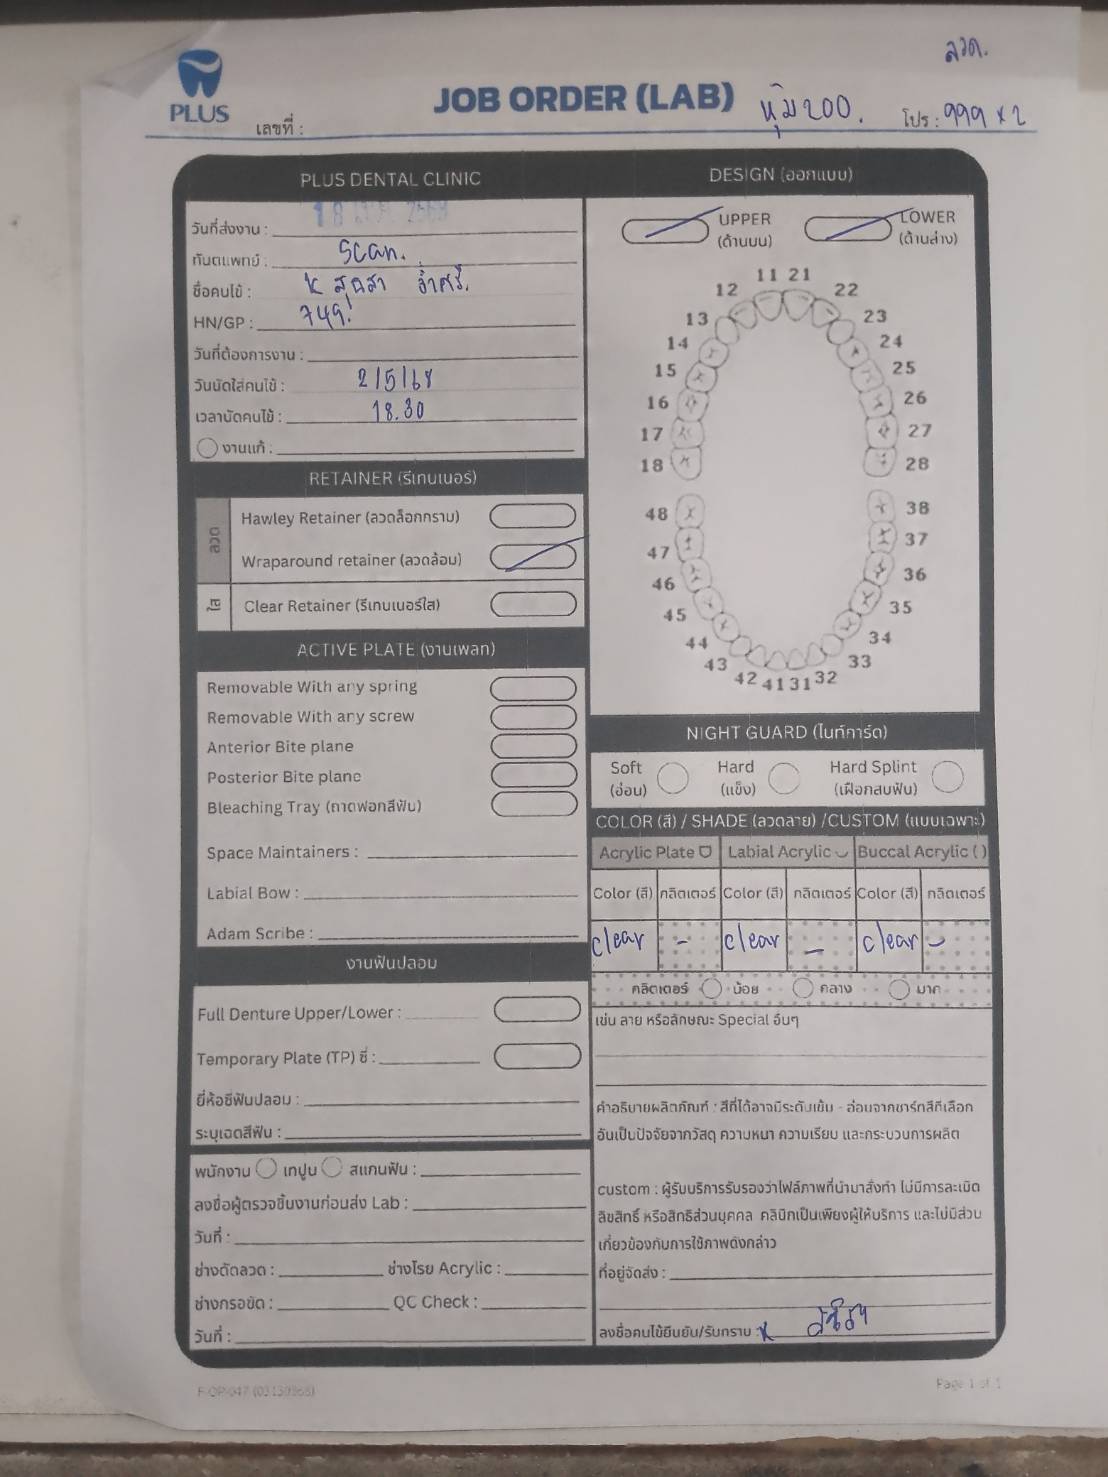 ลวด.
PLUS
JOB ORDER (LAB)
หุ้ม 200.
โปร : 999 x 2
เลขที่ :
PLUS DENTAL CLINIC
วันที่ส่งงาน : 18 2568
ทันตแพทย์ : Scan.
ชื่อคนไข้ : K
HN/GP : 749
วันที่ต้องการงาน :
วันนัดใส่คนไข้ : 2/5/68
เวลานัดคนไข้ : 18.30
งานแก้ :
RETAINER (รีเทนเนอร์)
ลวด
Hawley Retainer (ลวดล็อกกราม)
Wraparound retainer (ลวดล้อม)
ใส
Clear Retainer (รีเทนเนอร์ใส)
ACTIVE PLATE (งานเพลท)
Removable With any spring
Removable With any screw
Anterior Bite plane
Posterior Bite plane
Bleaching Tray (ถาดฟอกสีฟัน)
Space Maintainers :
Labial Bow :
Adam Scribe :
งานฟันปลอม
Full Denture Upper/Lower :
Temporary Plate (TP) ซี่ :
ยี่ห้อซี่ฟันปลอม :
ระบุเฉดสีฟัน :
พนักงาน เทปูน สแกนฟัน :
ลงชื่อผู้ตรวจชิ้นงานก่อนส่ง Lab :
วันที่ :
ช่างดัดลวด : ช่างโรย Acrylic :
ช่างกรอขัด : QC Check :
วันที่ :
DESIGN (ออกแบบ)
UPPER (ด้านบน)
LOWER (ด้านล่าง)
11 21
12 22
13 23
14 24
15 25
16 26
17 27
18 28
48 38
47 37
46 36
45 35
44 34
43 33
42 41 31 32
NIGHT GUARD (ไนท์การ์ด)
Soft (อ่อน)
Hard (แข็ง)
Hard Splint (เฝือกสบฟัน)
COLOR (สี) / SHADE (ลวดลาย) /CUSTOM (แบบเฉพาะ)
Acrylic Plate Labial Acrylic Buccal Acrylic ( )
Color (สี) กลิตเตอร์ Color (สี) กลิตเตอร์ Color (สี) กลิตเตอร์
clear - clear - clear -
กลิตเตอร์ น้อย กลาง มาก
เช่น ลาย หรือลักษณะ Special อื่นๆ
คำอธิบายผลิตภัณฑ์ : สีที่ได้อาจมีระดับเข้ม - อ่อนจากชาร์ทสีที่เลือก
อันเป็นปัจจัยจากวัสดุ ความหนา ความเรียบ และกระบวนการผลิต
custom : ผู้รับบริการรับรองว่าไฟล์ภาพที่นำมาสั่งทำ ไม่มีการละเมิด
ลิขสิทธิ์ หรือสิทธิส่วนบุคคล คลินิกเป็นเพียงผู้ให้บริการ และไม่มีส่วน
เกี่ยวข้องกับการใช้ภาพดังกล่าว
ที่อยู่จัดส่ง :
ลงชื่อคนไข้ยืนยัน/รับทราบ : x
Page 1 of 1